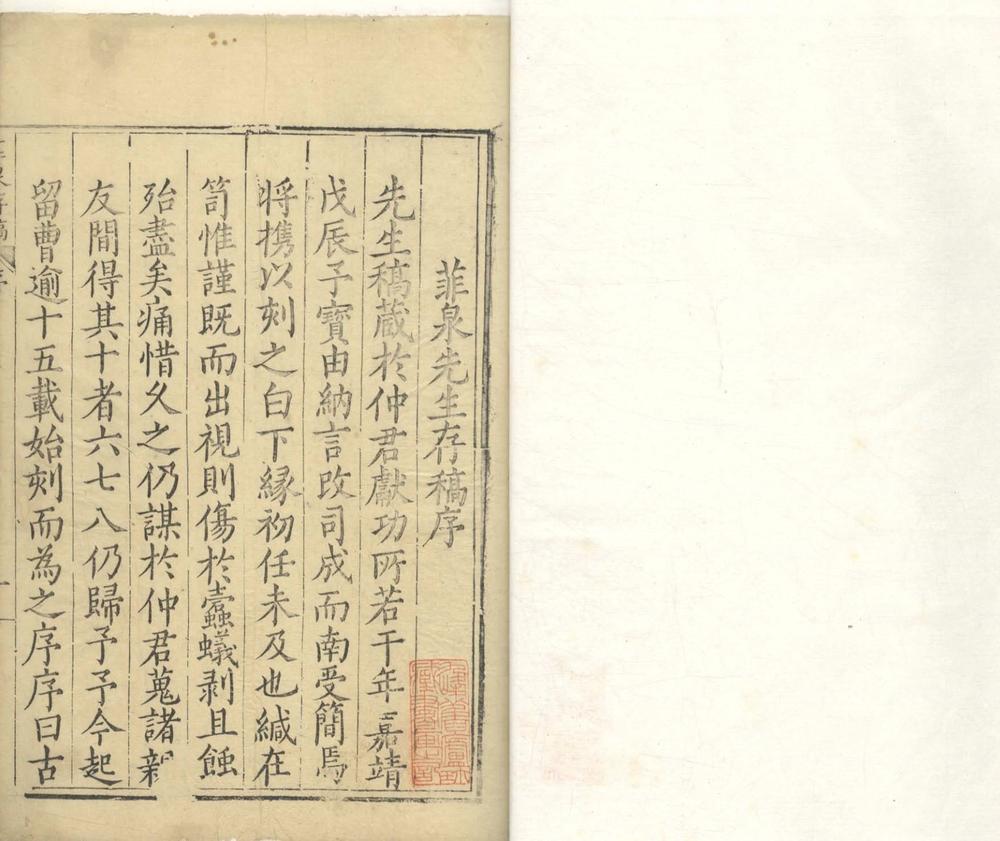 菲泉先生存稿序
先生稿蔵於仲君獻功所若干年嘉靖
戊辰子寶由納言改司成而南受簡焉
将携以刻之白下縁初任未及也緘在
笥惟謹既而出視則傷於蠧蟻剥且蝕
殆盡矣痛惜久之仍謀於仲君蒐諸親
友間得其十者六七八仍歸予予今起
留曹逾十五載始刻而為之序序曰古